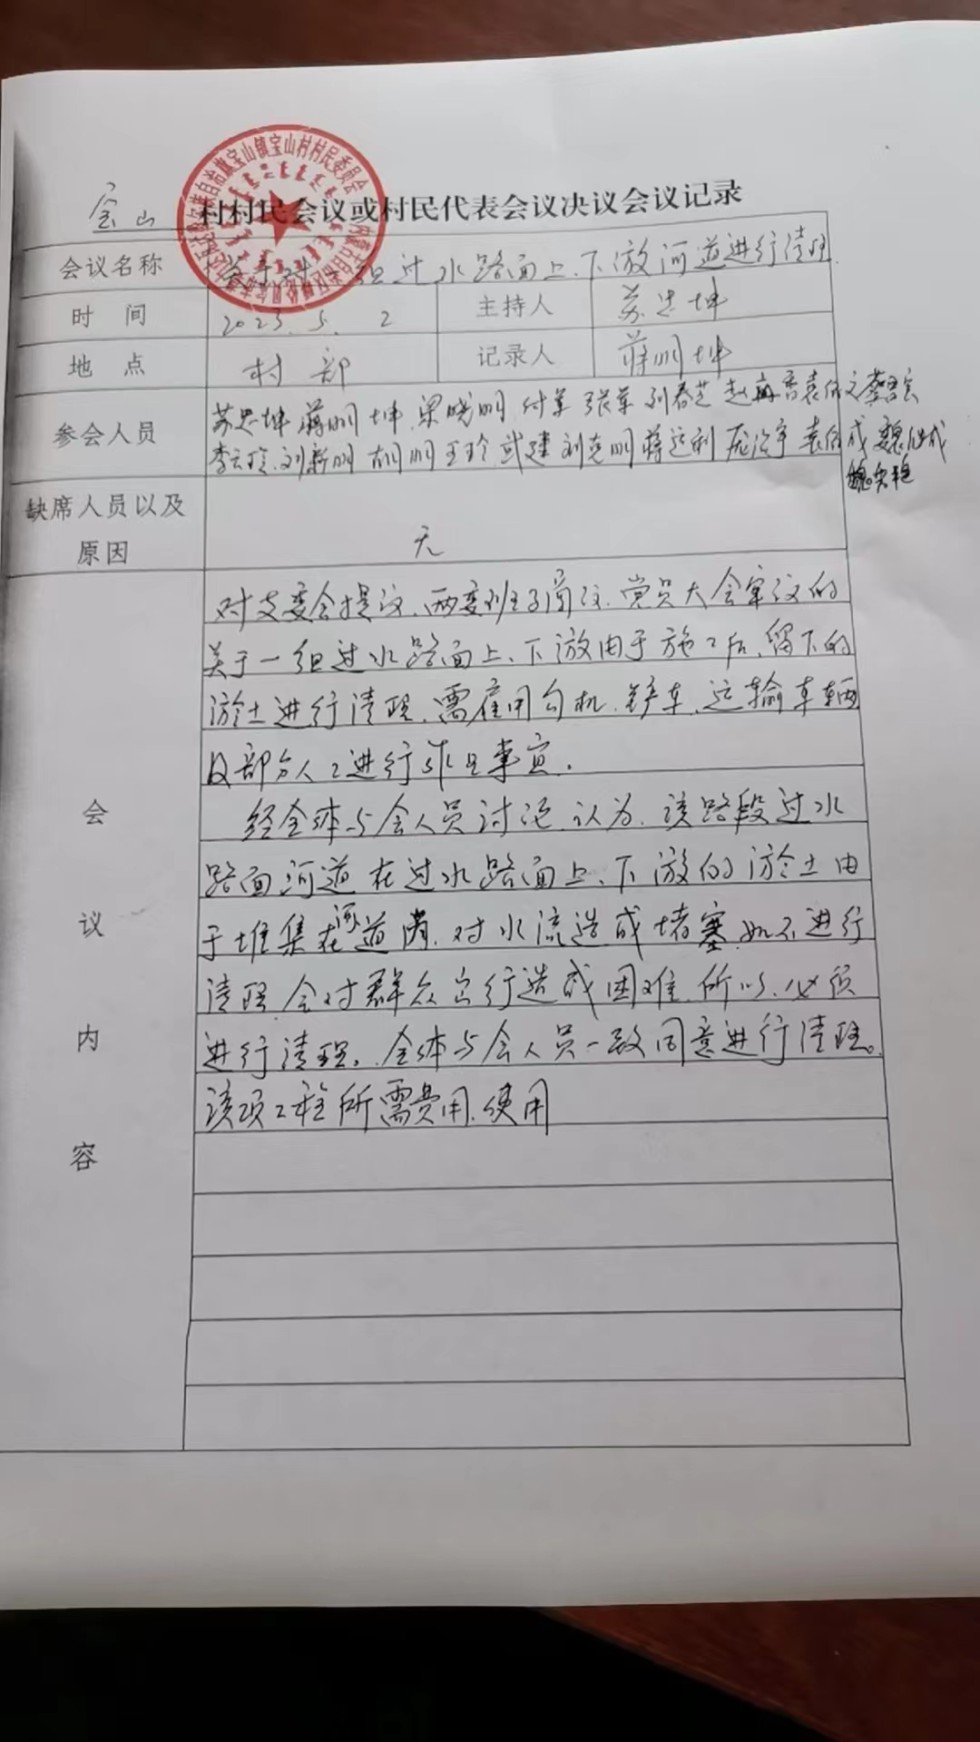 宝山村村民会议或村民代表会议决议会议记录
会议名称 关于对一组过水路面上、下游河道进行清理
时 间 2023.5.2 主持人 苏忠坤
地 点 村部 记录人 蒋明坤
参会人员 苏忠坤 蒋明坤 梁晓明 付军 张军 刘春芝
李云玲 刘新明 胡明 王玲 刘克明 蒋运利
缺席人员以及
原因 无
会议内容
对支委会提议、两委班子商议、党员大会审议的
关于一组过水路面上、下游由于施工后、留下的
淤土进行清理、需雇用勾机、铲车、运输车辆
及部分人工进行作业事宜.
经全体与会人员讨论、认为、该路段过水
路面河道在过水路面上、下游的淤土由
于堆集在河道内、对水流造成堵塞、如不进行
清理会对群众出行造成困难、所以、必须
进行清理。全体与会人员一致同意进行清理。
该项工程所需费用、使用